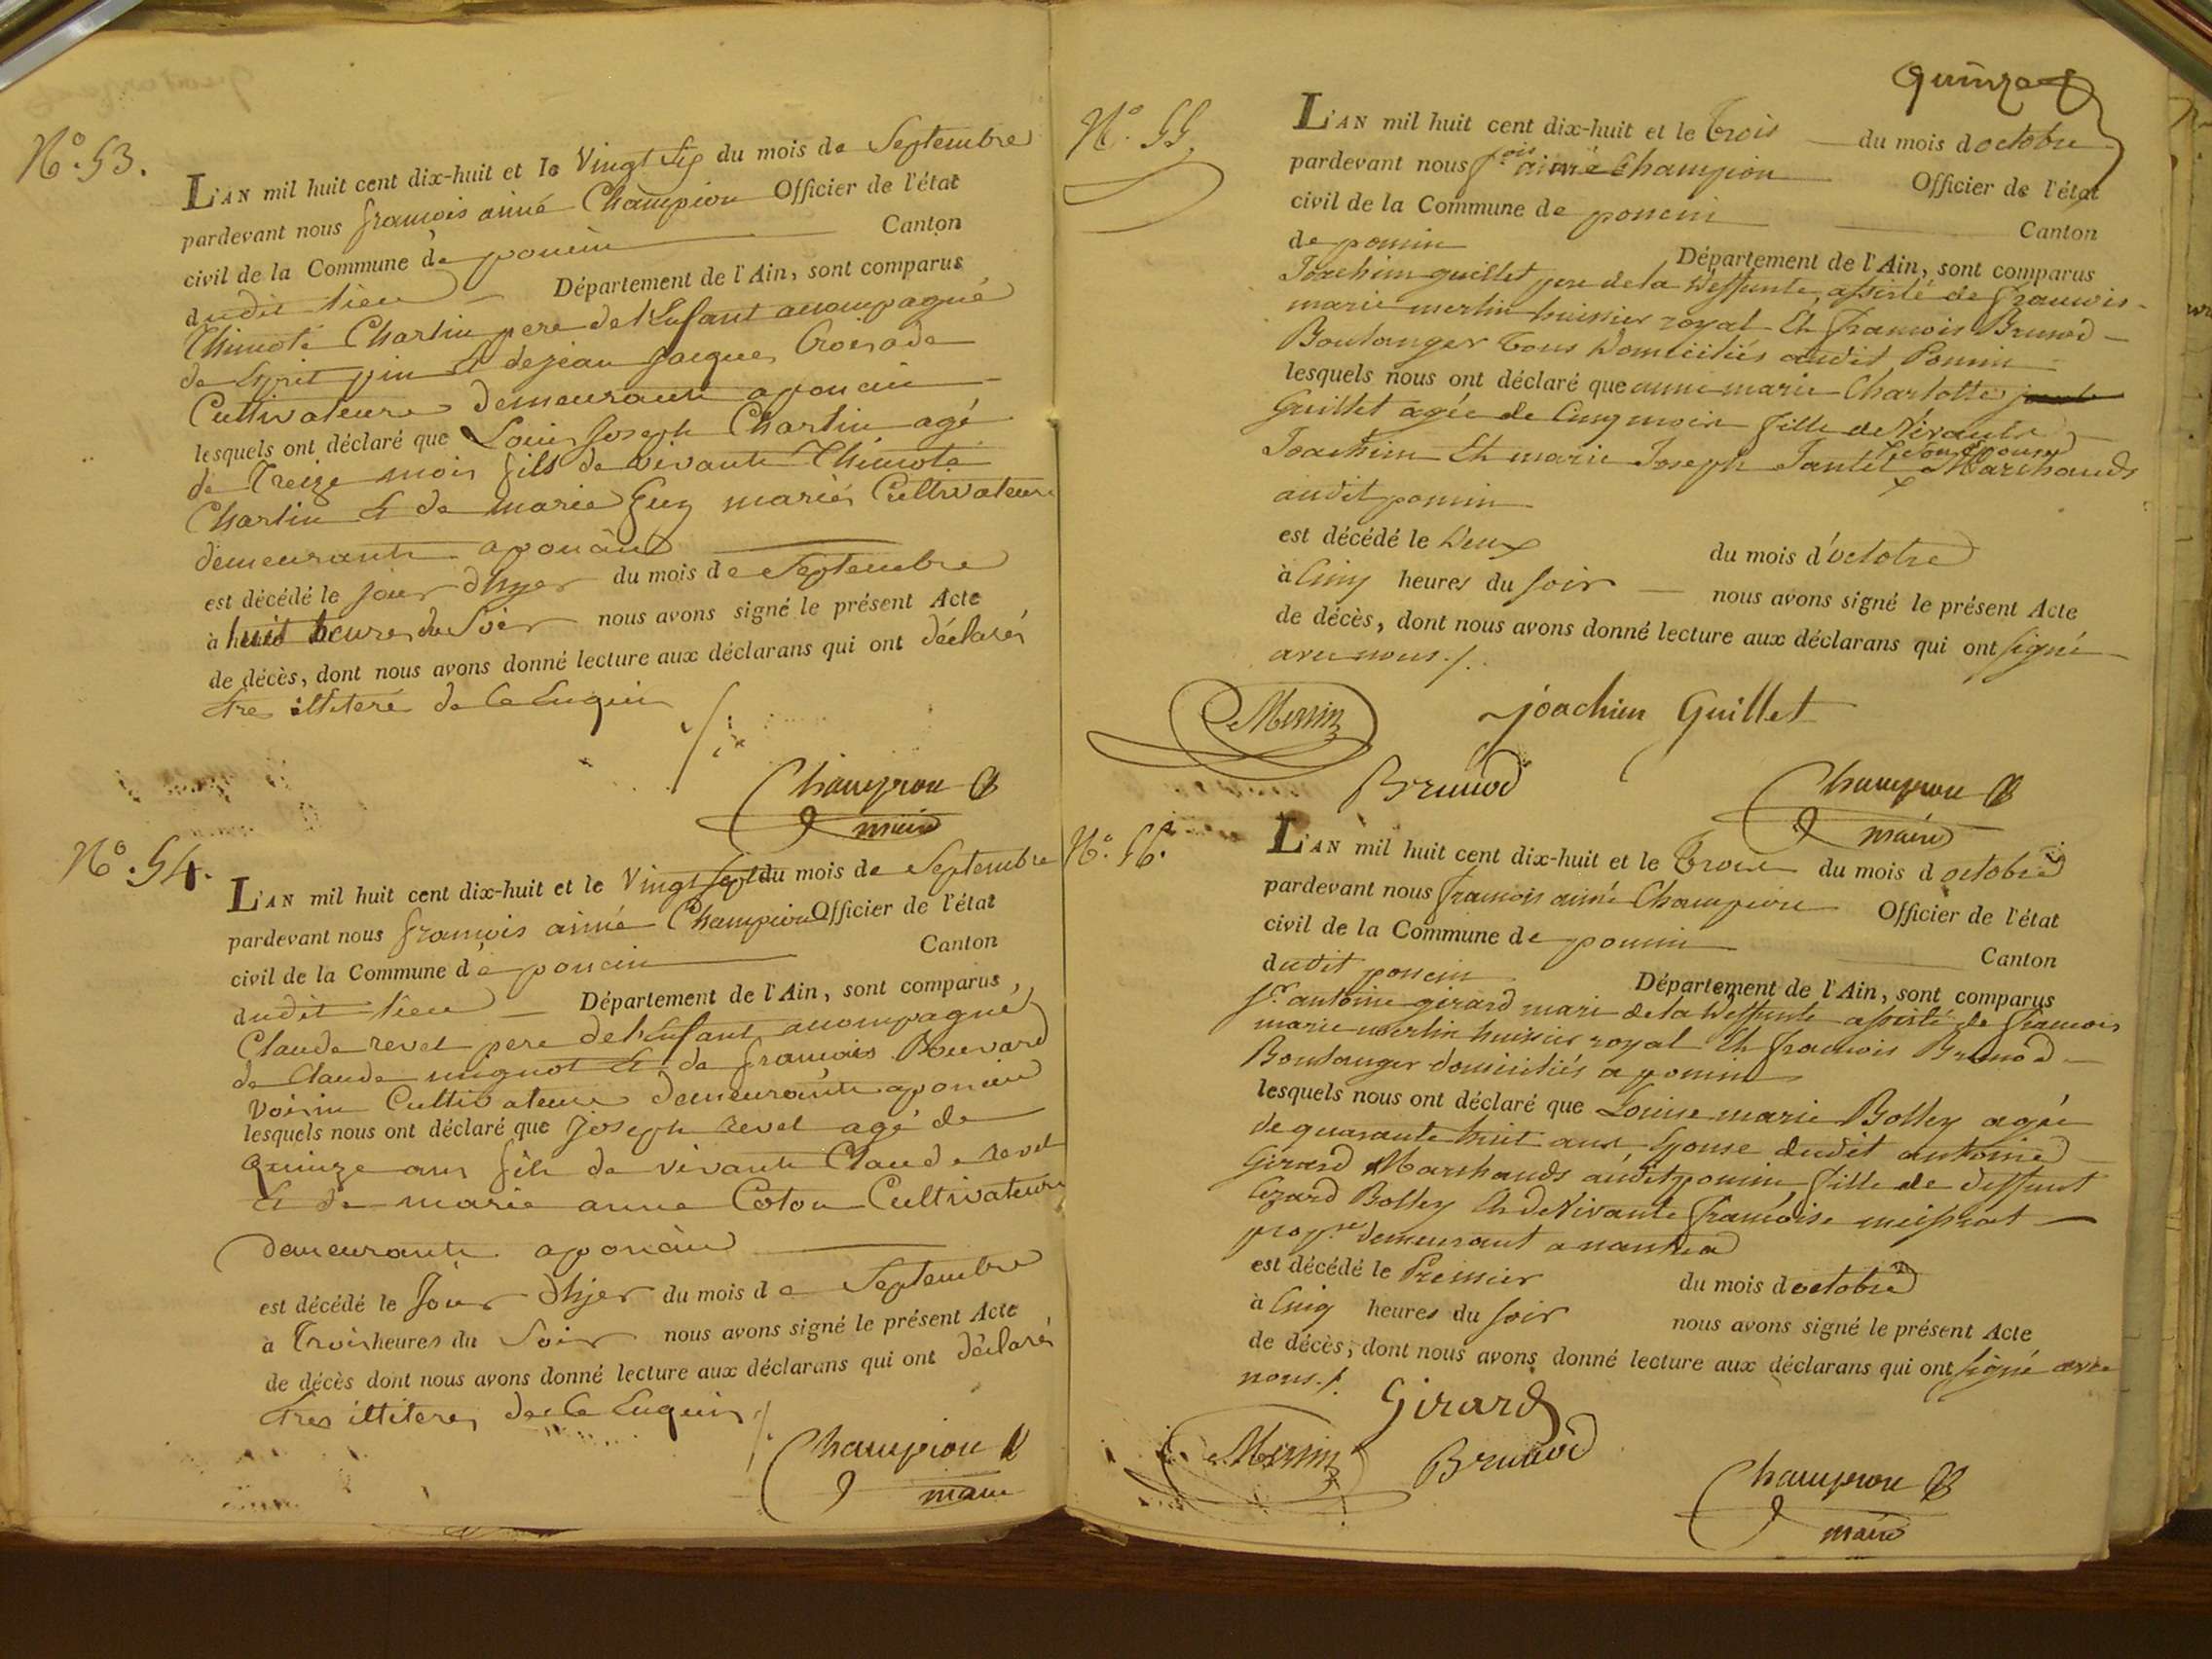 N.° 53.
L'AN mil huit cent dix-huit et le Vingt Sis du mois de Septembre
pardevant nous francois aimé Champion Officier de l'état
civil de la Commune de poncin Canton
dudit lieu Département de l'Ain, sont comparus
Thimoté Charlin pere de l'Enfant acompagné
de Esprit pin Et de jean jacques Croisade
Cultivateurs demeurants a poncin
lesquels ont déclaré que Louis Joseph Charlin agé
de Treize mois fils de vivants Thimoté
Charlin Et de marie Guy mariés Cultivateurs
demeurants a poncin
est décédé le jour d'hyer du mois de Septembre
à huit heures du Soir nous avons signé le présent Acte
de décès, dont nous avons donné lecture aux déclarans qui ont déclarés
Etres illiteré de ce Enquis
Champion
maire
N.° 54.
L'AN mil huit cent dix-huit et le Vingt Sept du mois de Septembre
pardevant nous francois aimé Champion Officier de l'état
civil de la Commune dé poncin Canton
dudit lieu Département de l'Ain, sont comparus,
Claude revel pere de l'Enfant acompagné
de Claude mignot Et de francois Bouvard
Voisin Cultivateurs demeurants a poncin
lesquels nous ont déclaré que Joseph revel agé de
quinze ans fils de vivants Claude revel
Et de marie anne Coton Cultivateurs
demeurants a poncin
est décédé le Jour d'hjer du mois de Septembre
à Trois heures du Soir nous avons signé le présent Acte
de décès dont nous avons donné lecture aux déclarans qui ont déclarés
Etres illiteres de ce Enquis
Champion
maire
quinze
N.° 55.
L'AN mil huit cent dix-huit et le trois du mois d octobre
pardevant nous f.ois aimé Champion Officier de l'état
civil de la Commune de poncin Canton
de poncin Département de l'Ain, sont comparus
Joachim guillet pere de la deffunte, assisté de francois
marie merlin huissier royal Et francois Brunod
Boulanger tous domiciliés audit Poncin
lesquels nous ont déclaré que anne marie Charlotte
Guillet agée de Cinq mois fille de Vivants
Joachim Et marie Joseph Tantet Marchands
son Epouse
audit poncin
est décédé le deux du mois d'octobre
à Cinq heures du soir nous avons signé le présent Acte
de décès, dont nous avons donné lecture aux déclarans qui ont signé
avec nous./.
Merlin joachim Guillet
Brunod Champion
maire
N.° 56.
L'AN mil huit cent dix-huit et le trois du mois d octobre
pardevant nous francois aimé Champion Officier de l'état
civil de la Commune de poncin Canton
dudit poncin Département de l'Ain, sont comparus
s.r antoine girard mari de la deffunte assisté de francois
marie merlin huissier royal Et francois Brunod
Boulanger domiciliés a poncin
lesquels nous ont déclaré que Louise marie Bolley agée
de quarante huit ans Epouse dudit antoine
Girard Marchands audit poncin fille de deffunt
Cezard Bolley Et de Vivante francoise
prop.res demeurant a nantua
est décédé le Premier du mois d octobre
à Cinq heures du soir nous avons signé le présent Acte
de décès, dont nous avons donné lecture aux déclarans qui ont signé avec
nous./.
Girard
Merlin Brunod
Champion
maire